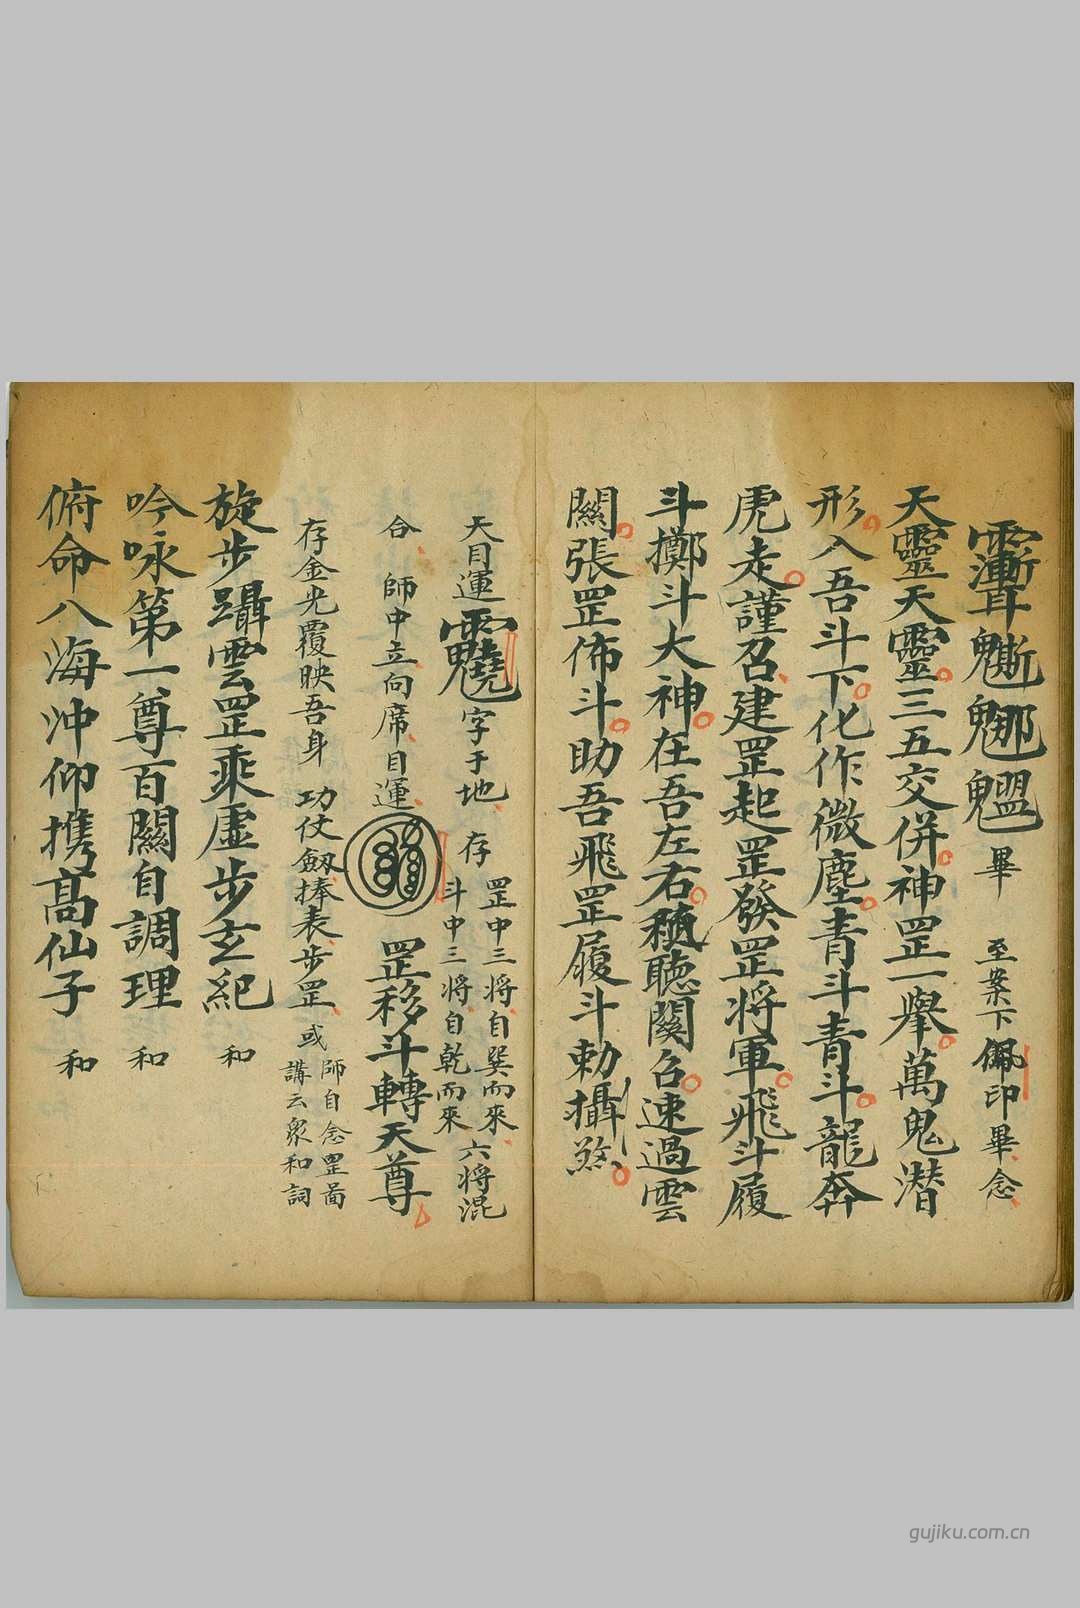 畢 至案下佩印畢念
天靈天靈三五交併神罡一舉萬鬼潛
形入吾斗下化作微塵青斗青斗龍奔
虎走謹召建罡起罡發罡將軍飛斗履
斗擲斗大神在吾左右聽關召速過雲
關張罡佈斗助吾飛罡履斗勅攝煞
天目運 字于地 存 罡中三將自巽而來 斗中三將自乾而來 六將混
合 師中立向席目運 罡移斗轉天尊
存金光覆映吾身 功仗劒捧表步罡 或 師自念罡畐 講云衆和詞
旋步躡雲罡乘虛步玄紀 和
吟咏第一尊百關自調理 和
俯命八海沖仰携髙仙子 和
gujiku.com.cn